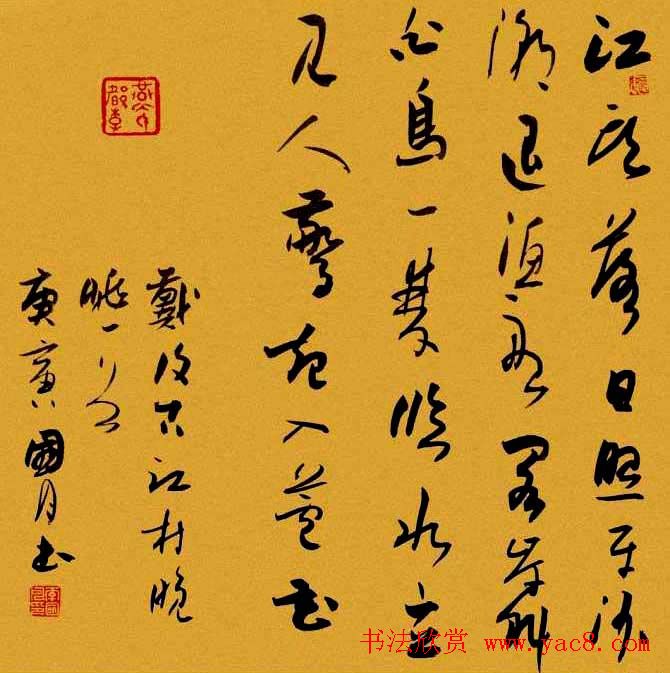 江頭落日照平沙
潮退漁船閣岸斜
白鳥一雙臨水立
見人驚起入蘆花
戴復古江村晚
眺一首
庚寅國月書
书法欣赏 www.yac8.com